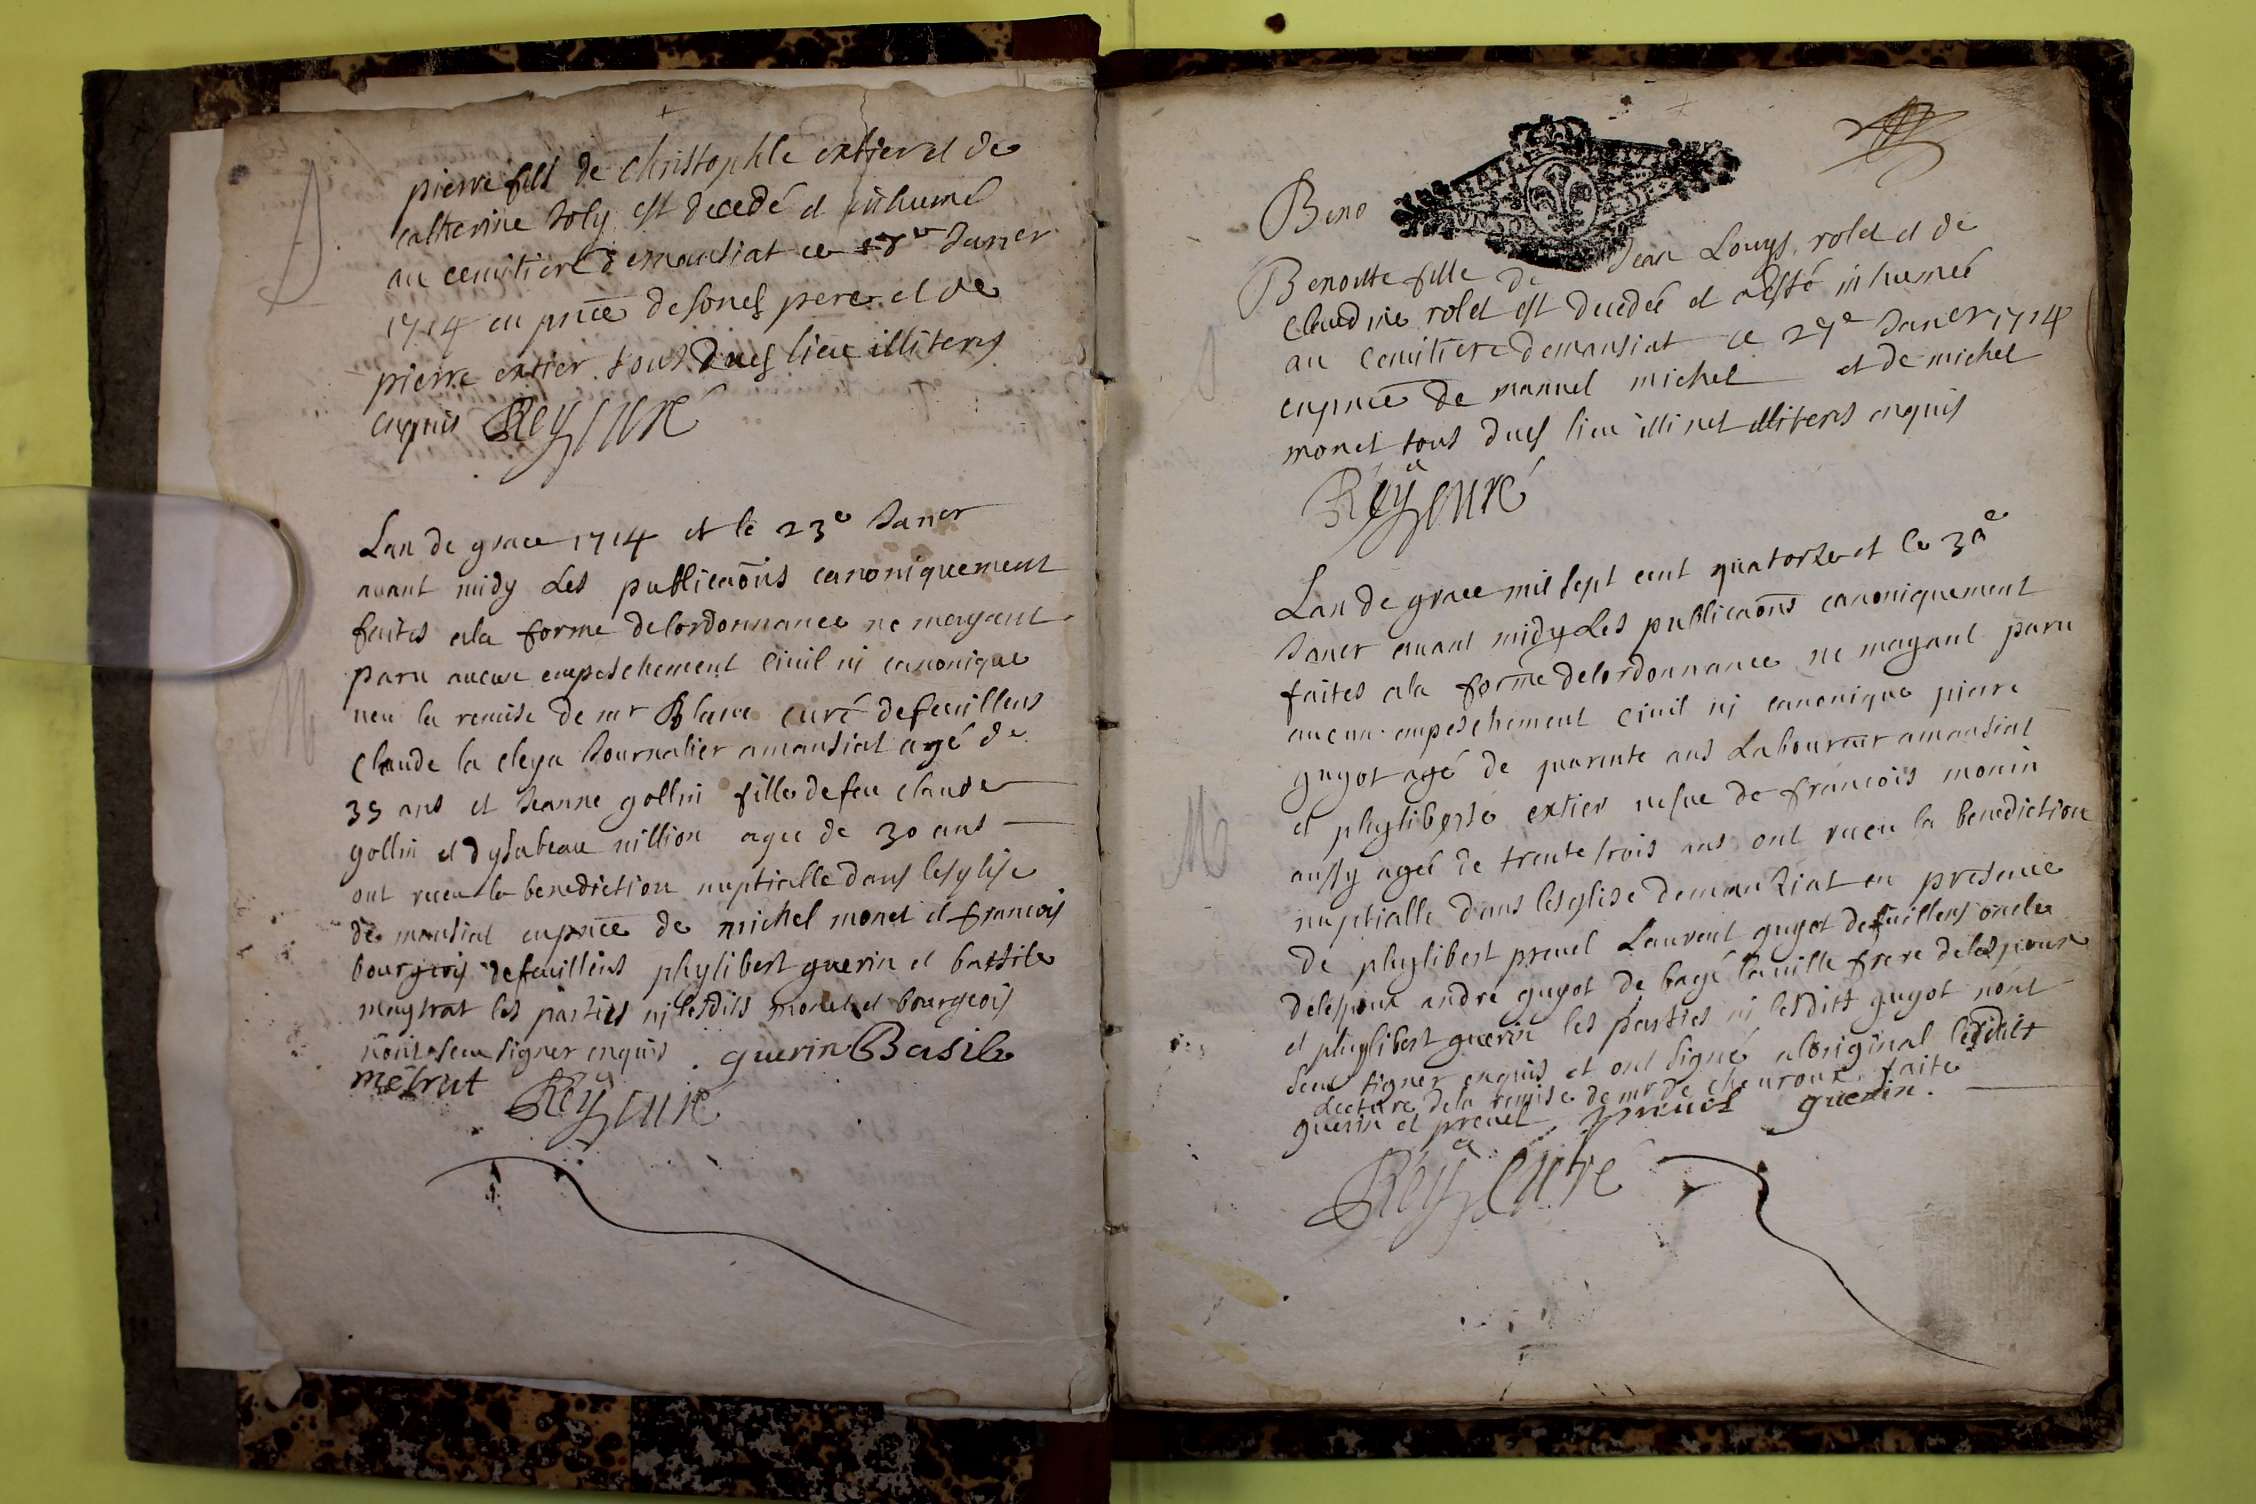 D
pierre fils de christophle extier et de
catherine Joly est decedé et inhumé
au cemitiere demansiat ce Janer
1714 en pñce de son perer et de
pierre extier tous dud lieu illiterés
enquis Rey curé
Lan de grace 1714 et le 23e Janer
avant midy Les publicaõns canoniquement
faites ala forme delordonnance ne mayant
paru aucun empeschement civil ni canonique
veu la remise de mr Blanc curé defeuillens
Claude la cleya Journalier amansiat agé de
35 ans et Jeanne gollin fille defeu claude
gollin et dysabeau million agée de 30 ans
ont receu la benediction nuptialle dans lesglise
de mansiat enpñce de michel monet et francois
bourgeois defeuillens phylibert guerin et batsile
maytrat les parties ni lesdits monet et bourgeois
nont sceu signer enquis guerin Basile
metrat Rey curé
M
Beno
Benoitte fille de Jean Louys rolet et de
Claudine rolet est decedée et a esté inhumée
au cemitiere demansiat ce 27e Janer 1714
enpñce de manuel michel et de michel
monet tous dud lieu illi net illiterés enquis
Rey curé
Lan de grace mil sept cent quatorze et le 30e
Janer avant midy Les publicaõns canoniquement
faites ala forme delordonnance ne mayant paru
aucun empeschement civil ni canonique pierre
guyot agé de quarente ans Laboureur amansiat
et phyliberte extier vefve de francois monin
aussy agée de trente trois ans ont receu la benediction
nuptialle dans lesglise demansiat en presence
de phylibert prevel Laurent guyot defeuillens oncle
delespoux andre guyot de bagé laville frere delespoux
et phylibert guerin les parties ni lesdits guyot nont
sceu signer enquis et ont signé aloriginal lesdits
Lecture dela remise de mr de chevroux faite
guerin et prevel prevel guerin
Rey curé
M